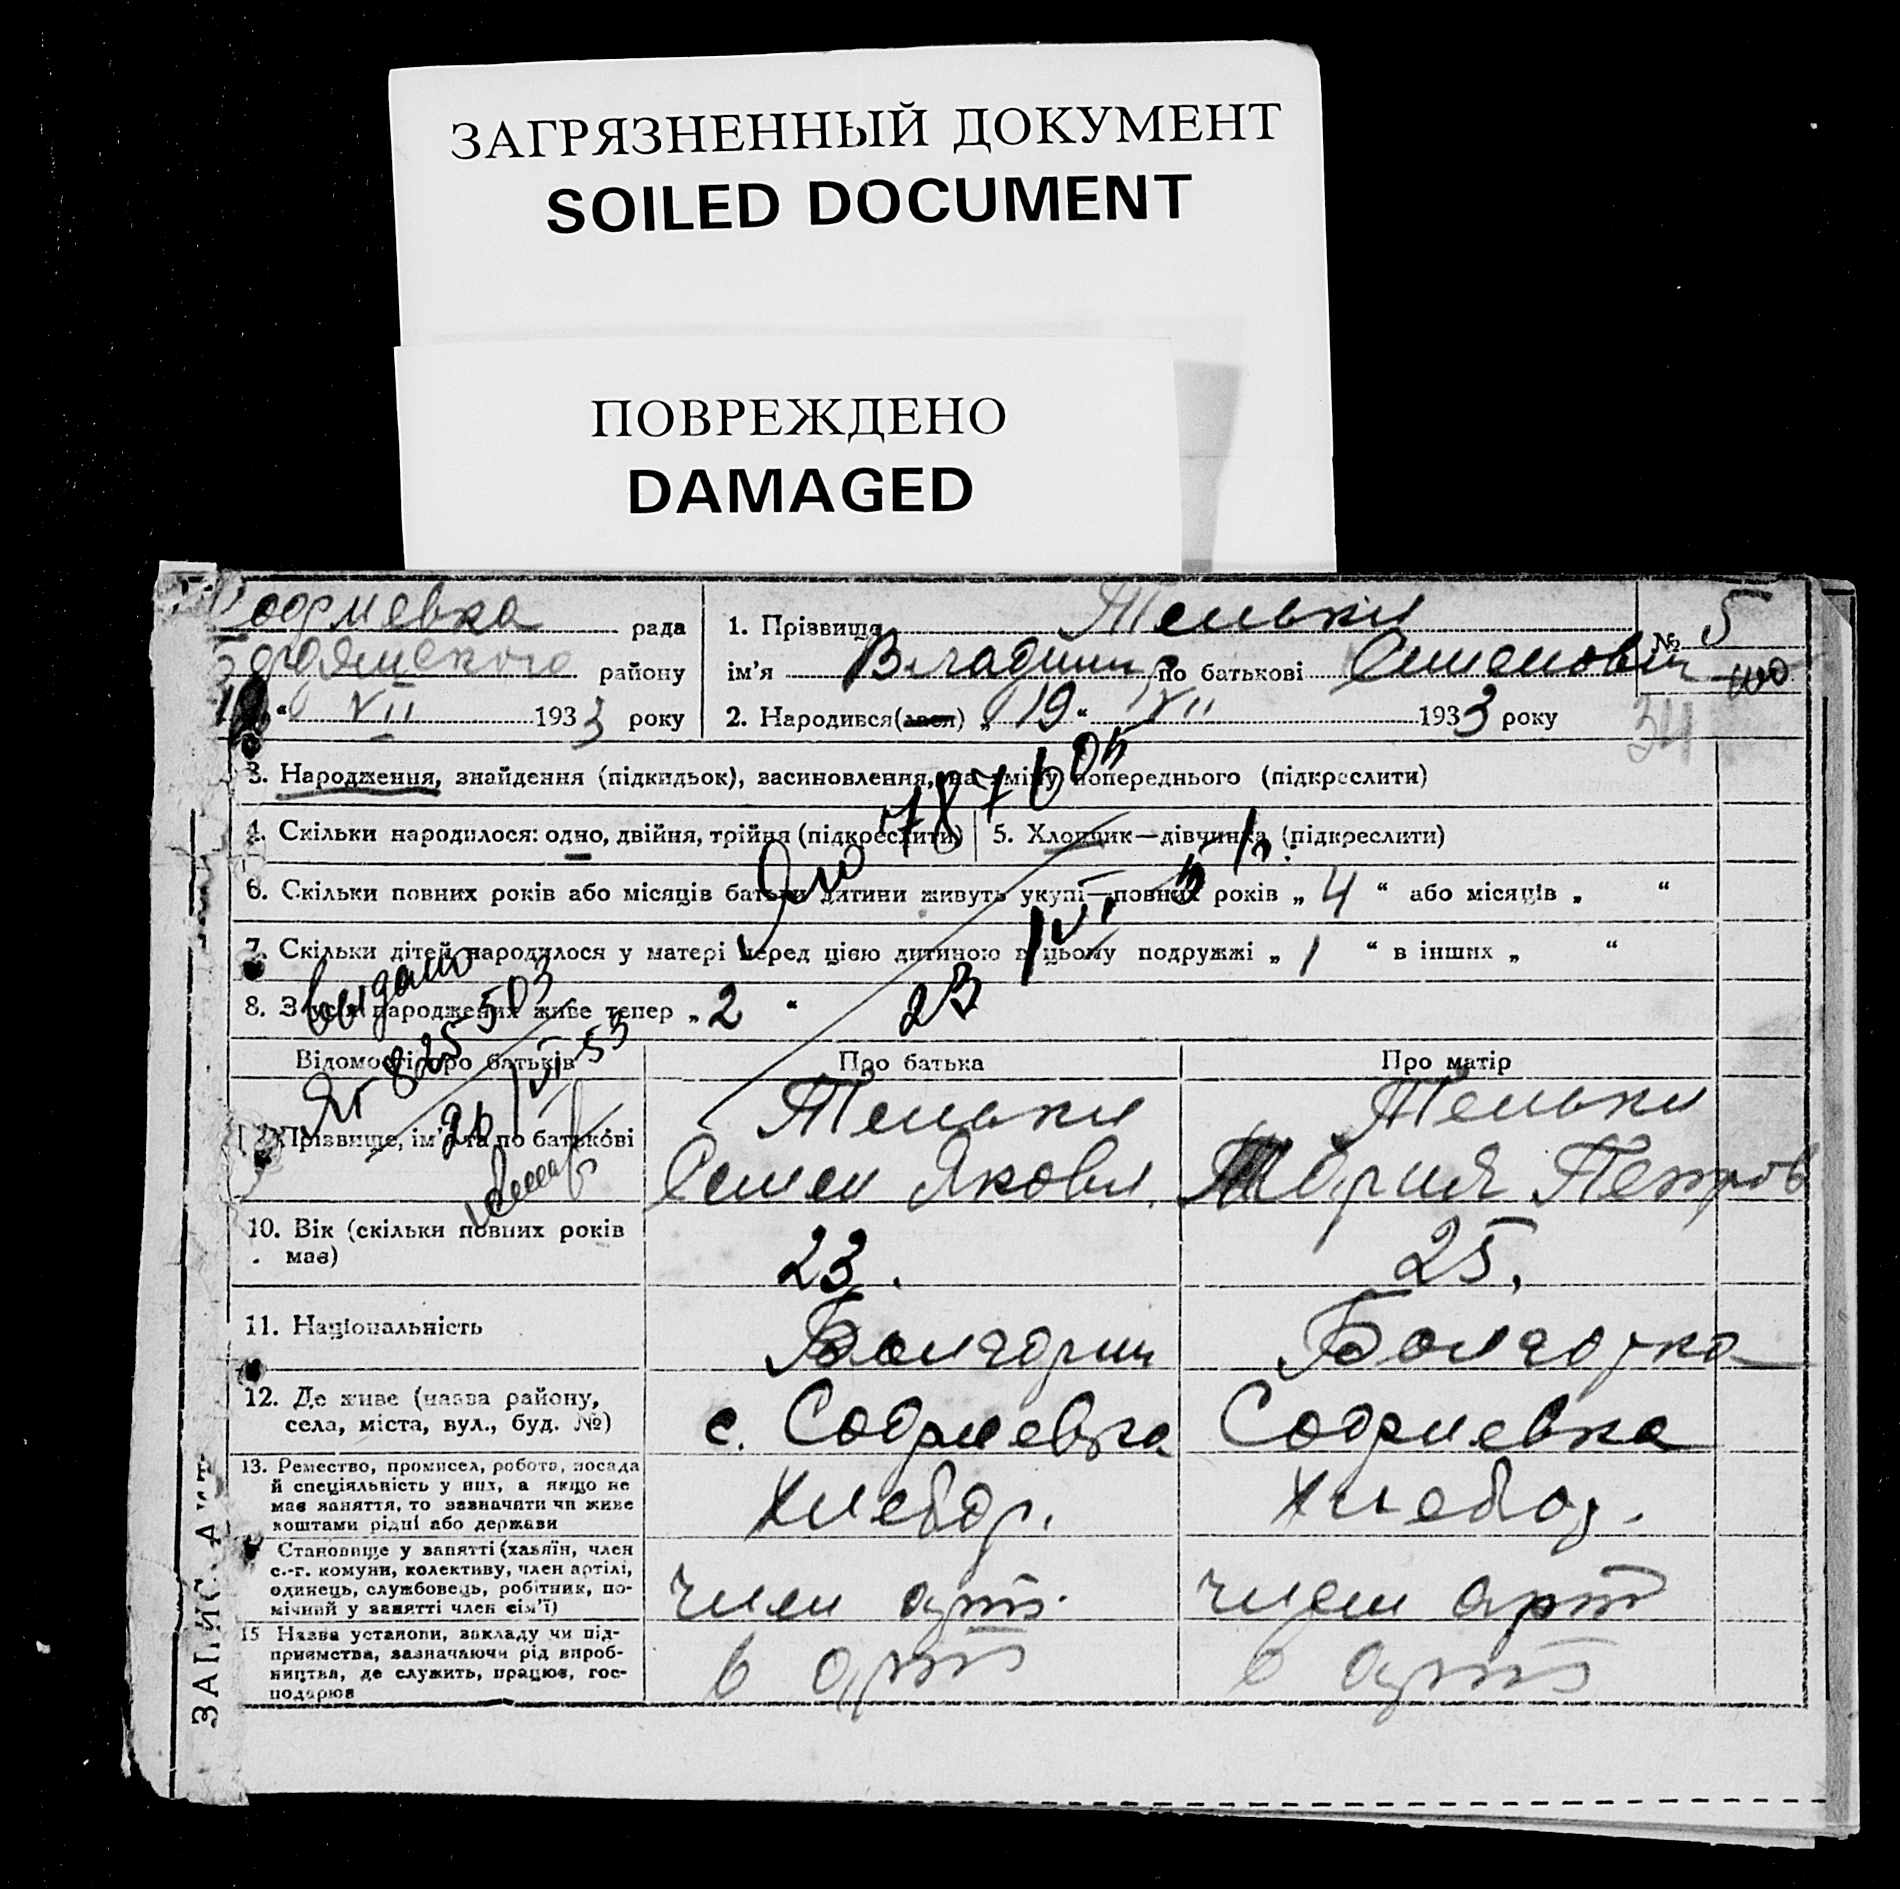 ЗАГРЯЗНЕННЫЙ ДОКУМЕНТ
SOILED DOCUMENT
ПОВРЕЖДЕНО
DAMAGED
рада
району
VII 1933 року
1. Прізвище Тельки
ім'я Владимир по батькові Семенович
2. Народився(лася) „19“ VII 1933 року
№ 5
34
3. Народження, знайдення (підкидьок), засиновлення, на зміну попереднього (підкреслити)
4. Скільки народилося: одно, двійня, трійня (підкреслити)
5. Хлопчик—дівчинка (підкреслити)
6. Скільки повних років або місяців батьки дитини живуть укупі—повних років „ 4 “ або місяців „ “
7. Скільки дітей народилося у матері перед цією дитиною в цьому подружжі „ 1 “ в інших „ “
8. З усіх народжених живе тепер „ 2 “
выдано
Відомості про батьків
Про батька
Про матір
Прізвище, ім'я та по батькові
Тельки
Семен Яковл.
Тельки
Мария Петров
10. Вік (скільки повних років має)
23.
25.
11. Національність
Болгарин
Болгарка
12. Де живе (назва району,
села, міста, вул., буд. №)
с. Софиевка
Софиевка
13. Ремество, промисел, робота, посада
й спеціяльність у них, а якщо не
має заняття, то зазначити чи живе
коштами рідні або держави
Хлебор.
Хлебор.
Становище у занятті (хазяїн, член
с.-г. комуни, колективу, член артілі,
одинець, службовець, робітник, по-
мічний у занятті член сім'ї)
член арт.
член арт
15 Назва установи, закладу чи під-
приємства, зазначаючи рід вироб-
ництва, де служить, працює, гос-
подарює
в арт
в арт